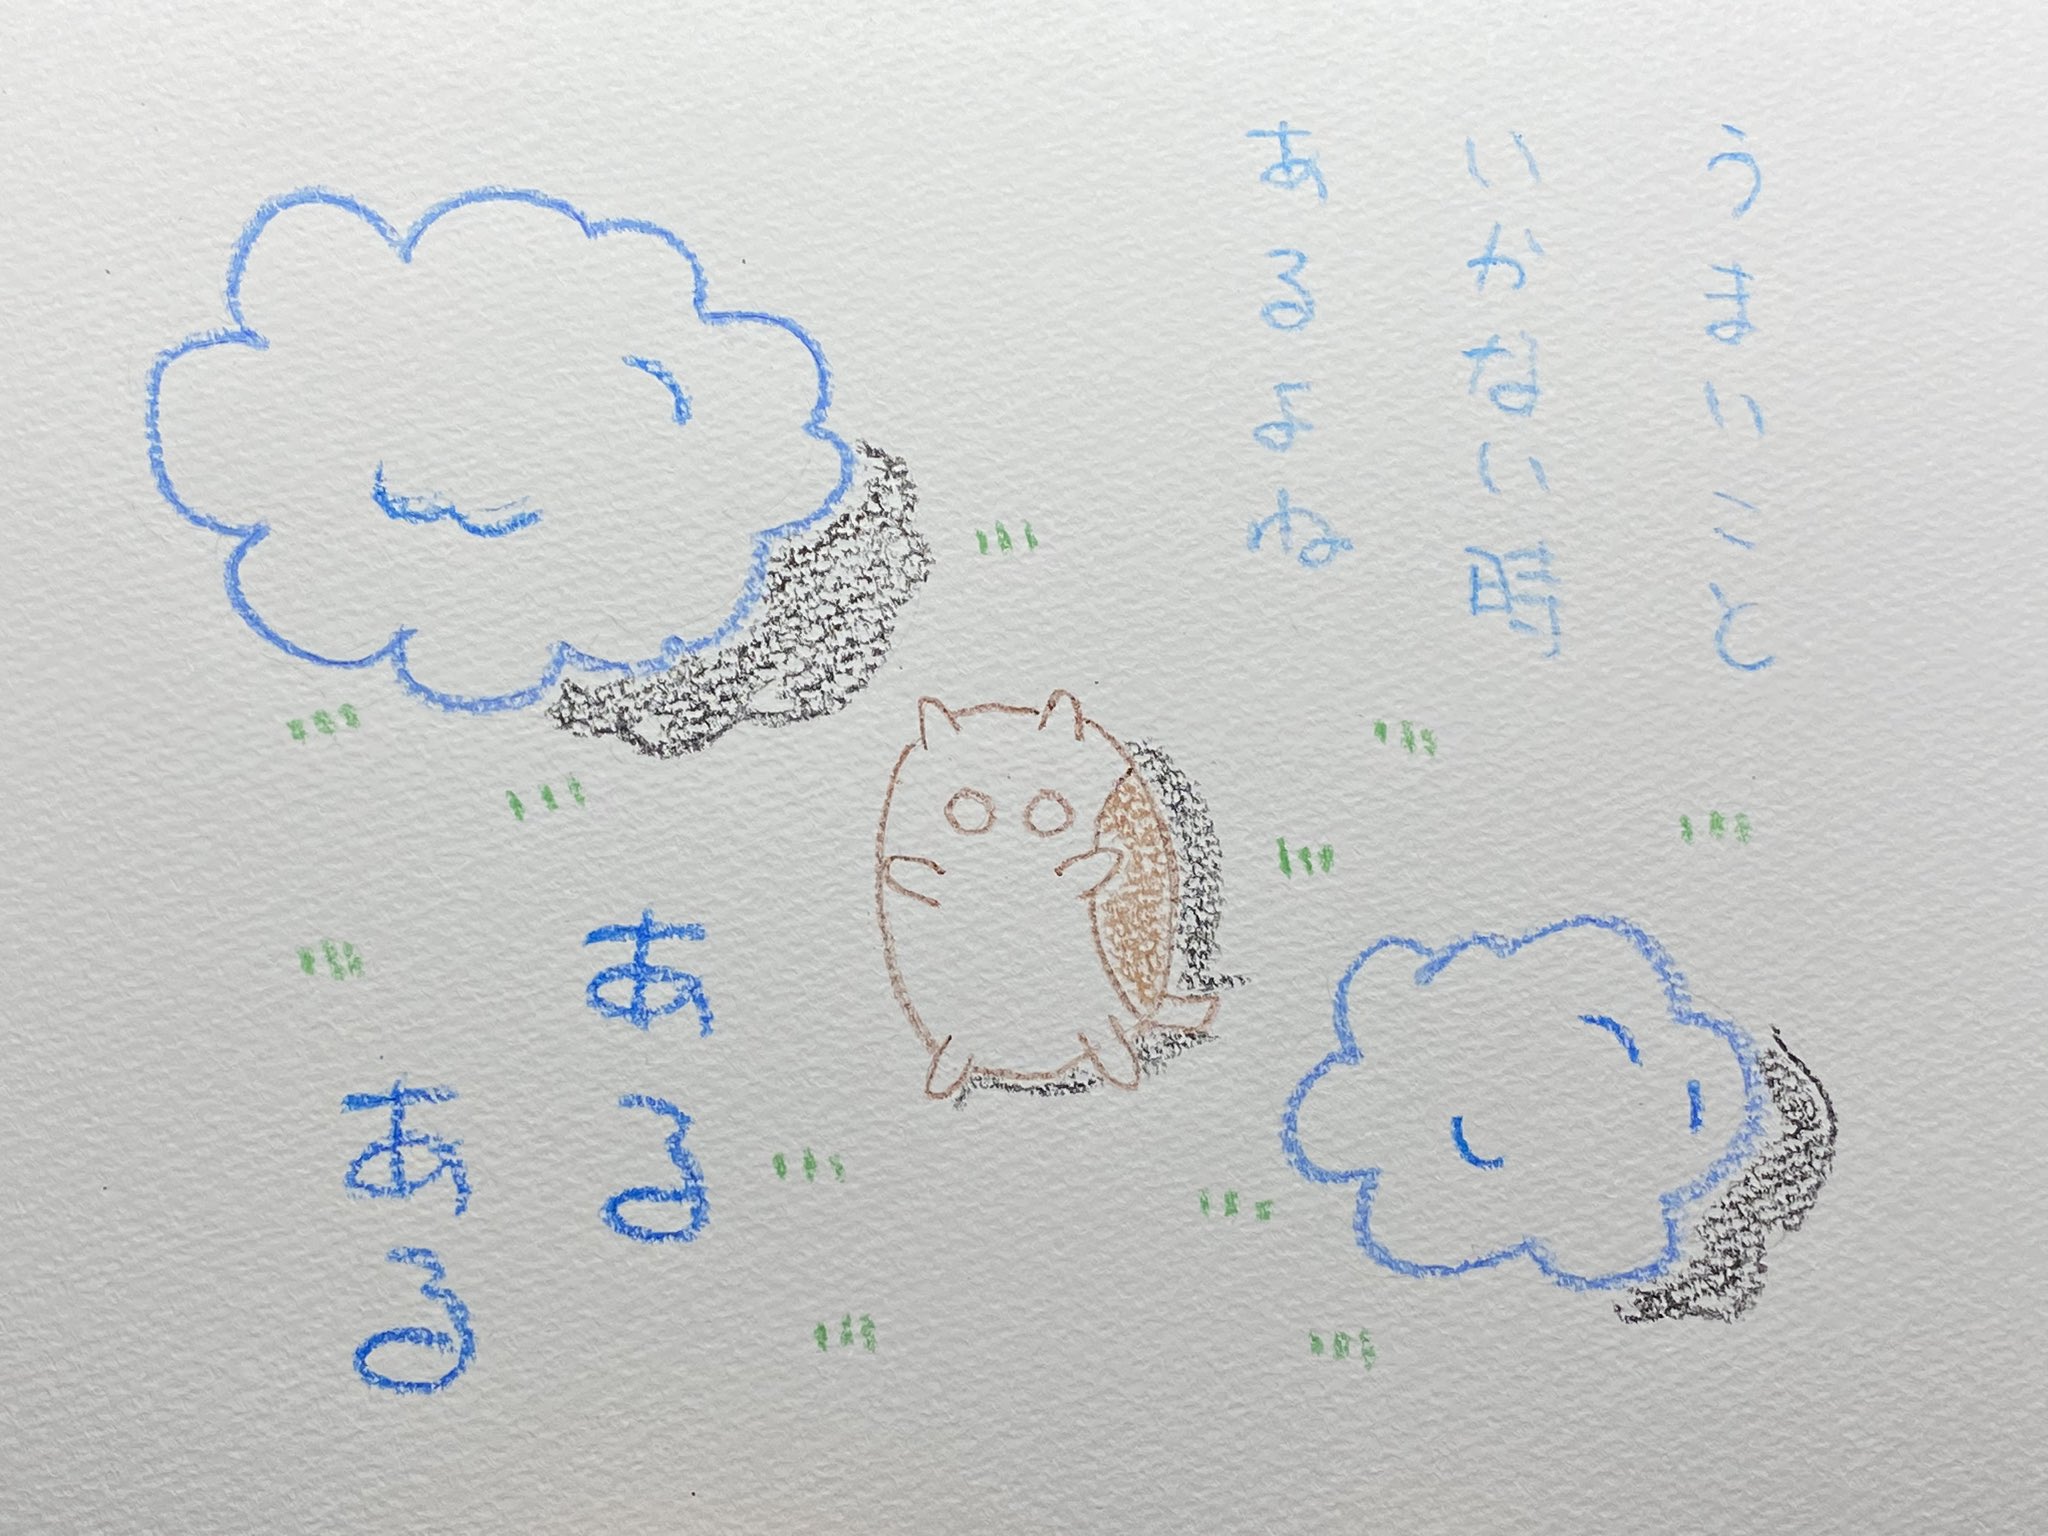 うまいこと
いかない時
あるよね
ある
ある